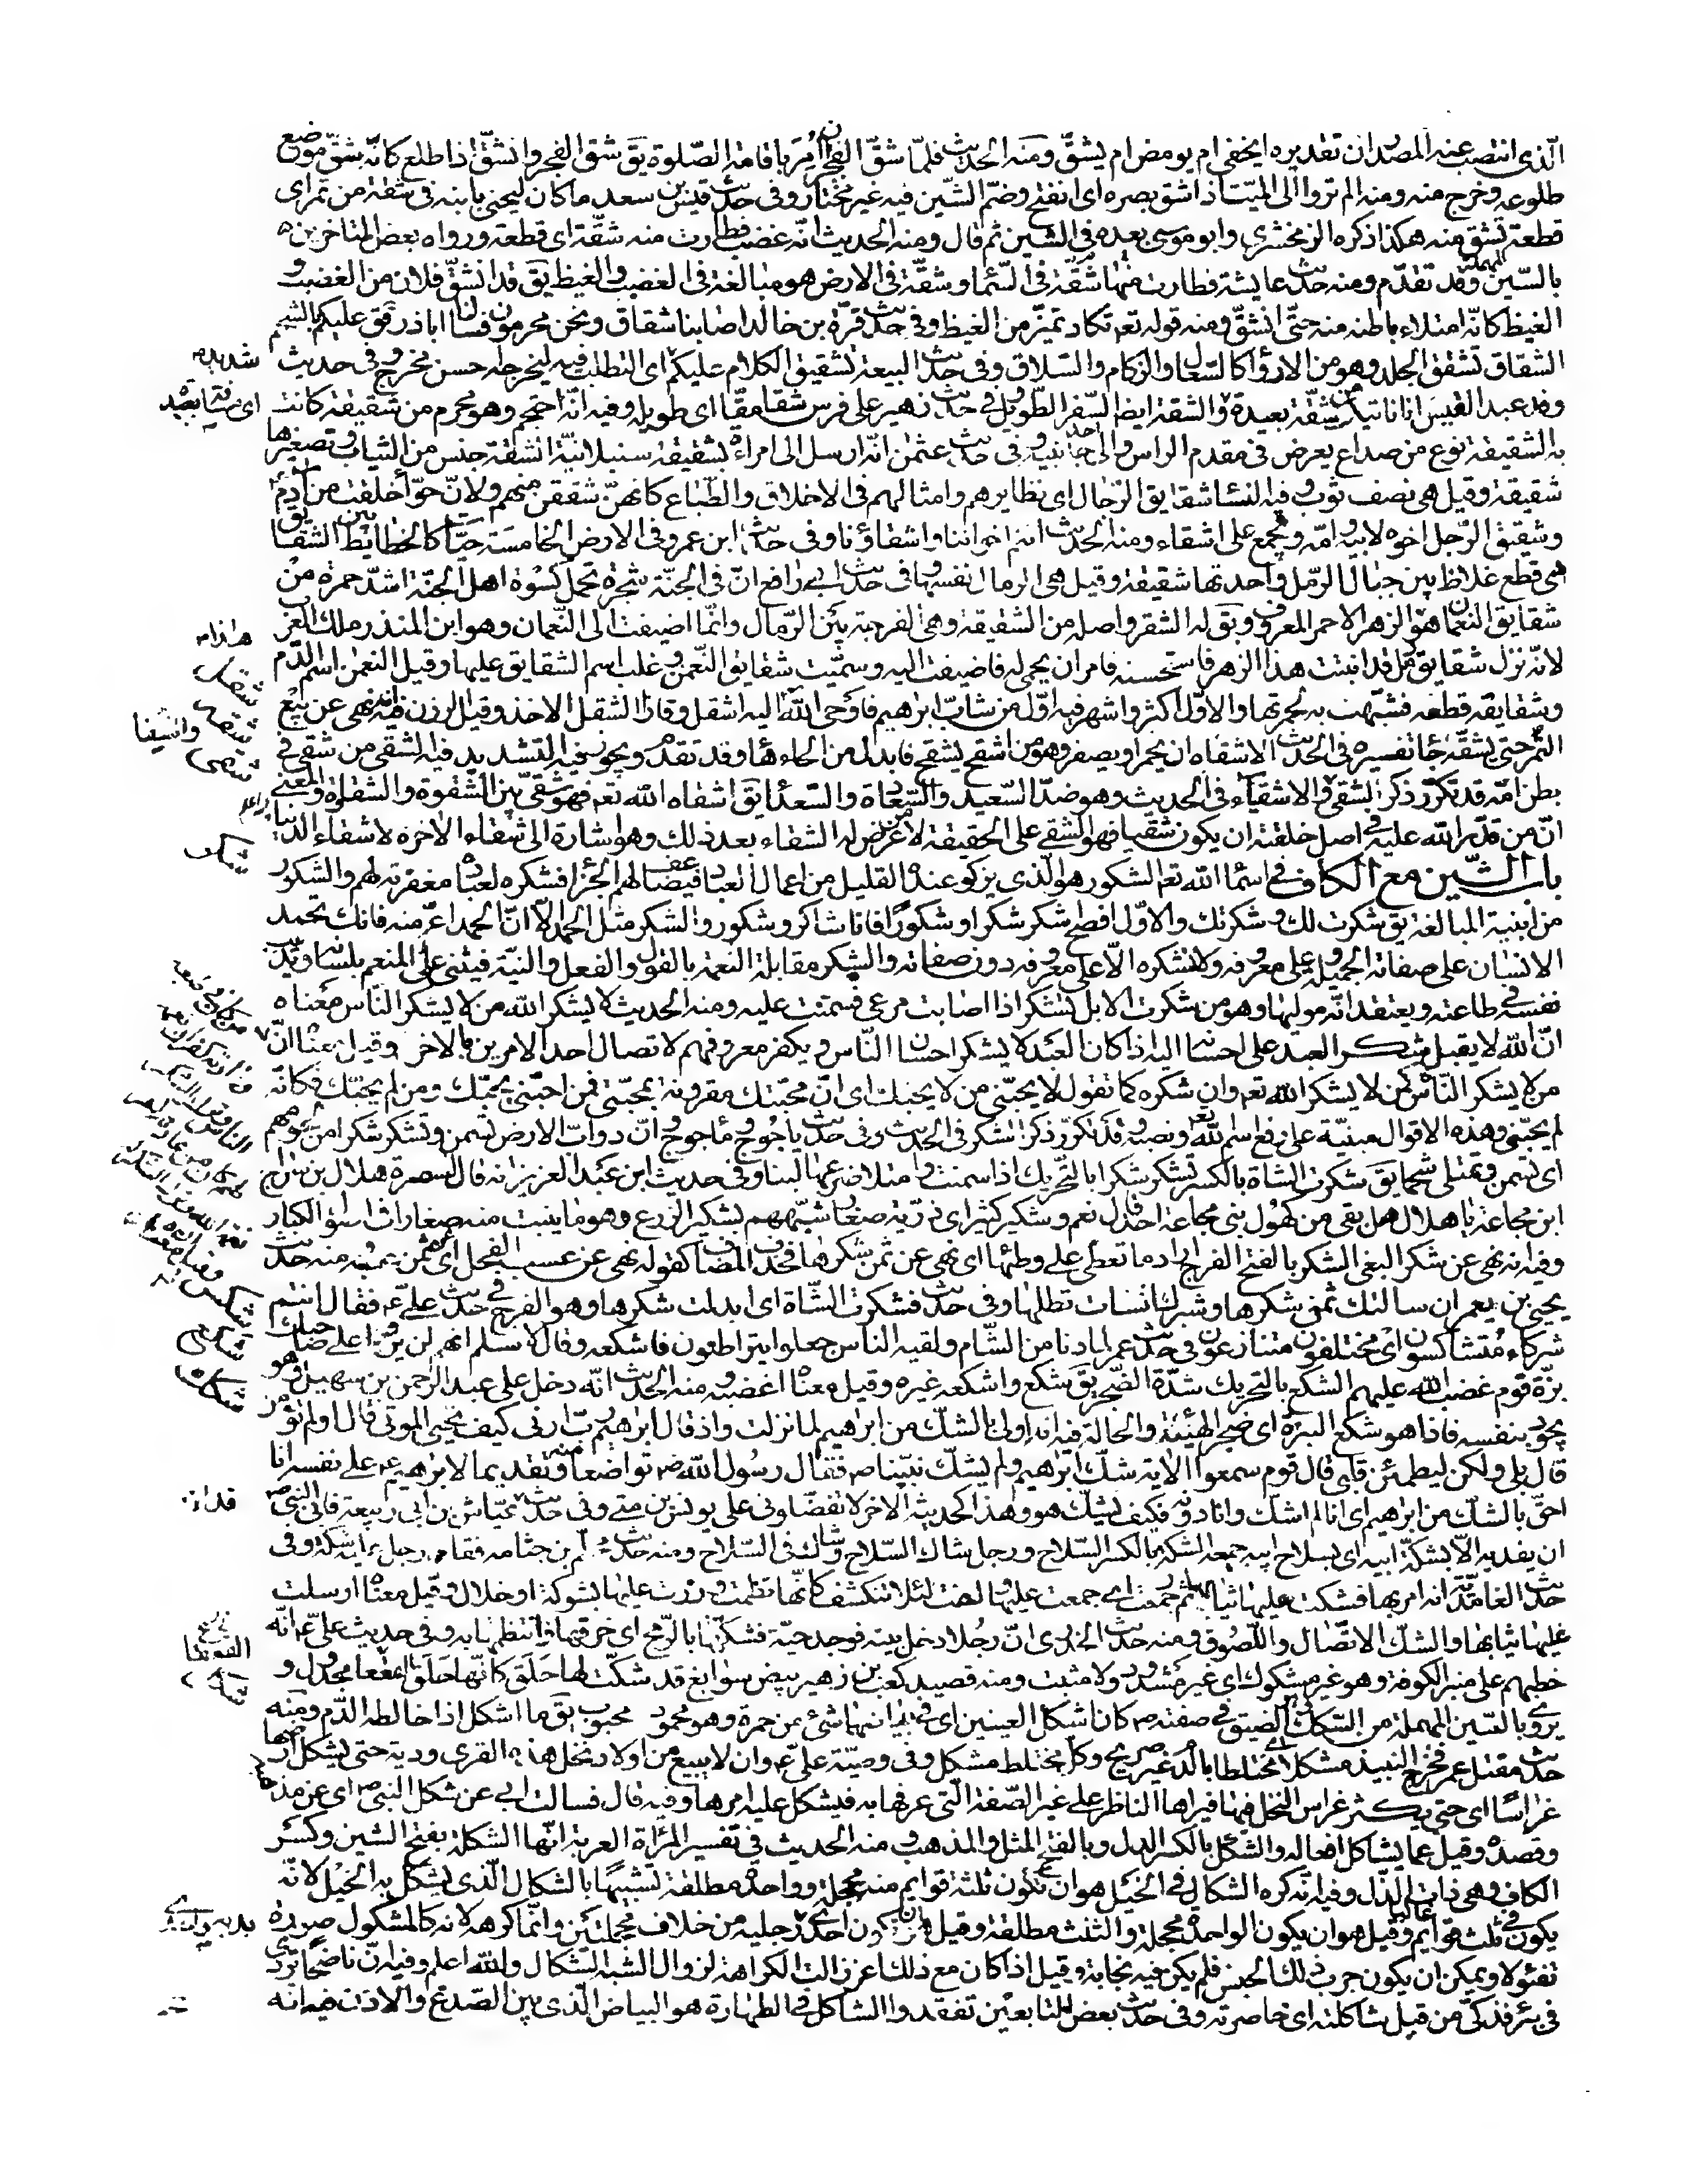 الّذى انتصب عنه المصدر ان تقديره ايخفى ام يومض ام يشقّ ومنه الحديث فلمّا شقّ الفجران اُمِرَ باقامة الصّلوة يق شقّ الفجر وانشقّ اذا طلع كانّه يشقّ موضع
طلوعه وخرج منه ومنه الم تروا الى الميّت اذا شق بصره اى انفتح وضمّ الشّين فيه غير مختار وفى حديث قيس بن سعد ما كان ليخنى بابنه فى شقّة من تمر اى
قطعة تشق منه هكذا ذكره الزمخشرى وابو موسى بعده فى الشّين ثم قال ومنه الحديث انّه غضب فطارت منه شقّة اى قطعة ورواه بعض المتاخرين
بالسّين المهملة وقد تقدّم ومنه حديث عايشة فطارت منها شقّة فى السّماء وشقّة فى الارض هو مبالغة فى الغضب والغيظ يق قد انشقّ فلان من الغضب و
الغيظ كانّه امتلاء باطنه منه حتّى انشقّ ومنه قوله تعم تكاد تميّز من الغيظ وفى حديث قرّة بن خالد اصابنا شقاق ونحن محرمون فسالنا اباذر فق عليكم بالشحم
الشقاق تشقق الجلد وهو من الادواء كالسّعال والزكام والسّلاق وفى حديث البيعة تشقيق الكلام عليكم اى التطلّب فيه ليخرجه احسن مخرج وفى حديث
وفد عبد القيس انا ناتيك من شقّة بعيدة والشقة ايضا السّفر الطّويل وفى حديث زهير على فرس شقّا مقّا اى طويله وفيه انّه احتجم وهو محرم من شقيقة كانت
به الشقيقة نوع من صداع يعرض فى مقدم الراس والى احد جانبيه وفى حديث عثمن انّه ارسل الى امراة بشقيقة سنبلانيّة الشقة جنس من الثياب وتصغيرها
شقيقة وقيل هى نصف ثوب وفيه النساء شقايق الرّجال اى نظايرهم وامثالهم فى الاخلاق والطّباع كانهنّ شققن منهم ولانّ حوّا خلقت من آدم
وشقيق الرّجل اخوه لابيه وامّه ويجمع على اشقاء ومنه الحديث انتم اخواننا واشقاؤنا وفى حديث ابن عمرو فى الارض الخامسة حيّات كالخطايط بين الشقايق
هى قطع غلاظ بين جبال الرّمل واحدتها شقيقة وقيل هى الرمال نفسها وفى حديث ابى رافع انّ فى الجنّة شجرة تحمل كسوة اهل الجنّة اشدّ حمرة من
شقايق النعمان هو الزهر الاحمر المعروف ويق له الشقر واصله من الشقيقة وهى الفرجة بين الرّمال وانّما اضيفت الى النّعمان وهو ابن المنذر ملك العرب
لانّه نزل شقايق رمل قد انبتت هذا الزهر فاستحسنه فامر ان يحمى له فاضيفت اليه وسمّيت شقايق النّعمن وغلب اسم الشقايق عليها وقيل النعمن اسم الدّم
وشقايقه قطعه فشبّهت به لحمرتها والاوّل اكثر واشهر فيه اوّل من شاب ابرهيم فاوحى الله اليه اشقل وقارا الشقل الاخذ وقيل الوزن فيه نهى عن بيع
التّمر حتى يشقّه جاء تفسيره فى الحديث الاشقاه ان يحمر او يصفر وهو من اشقح يشقح فابدل من الحاء هاء وقد تقدّم ويجوز فيه التشديد فيه الشقى من شقى فى
بطن امّه قد تكرّر ذكر الشقى والاشقياء فى الحديث وهو ضدّ السّعيد والسّعداء والسّعادة يق اشقاه الله تعم فهو شقىّ بيّن الشّقوة والشقاوة والمعنى
انّ من قدّر الله عليه فى اصل خلقته ان يكون شقيّا فهو الشقى على الحقيقة لا من عرض له الشقاء بعد ذلك وهو اشارة الى شقاء الآخرة لا شقاء الدنيا
باب الشّين مع الكاف فى اسماء الله تعم الشكور هو الّذى يزكو عنده القليل من اعمال العباد فيضاعف لهم الجزاء فشكره لعباده مغفرته لهم والشكور
من ابنية المبالغة يق شكرت لك وشكرتك والاوّل افصح شكر شكرا وشكورًا فانا شاكر وشكور والشكر مثل الحمد الّا انّ الحمد اعمّ منه فانك تحمد
الانسان على صفاته الجميلة وعلى معروفه ولا تشكره الّا على معروفه دون صفاته والشكر مقابلة النعمة بالقول والفعل والنيّة فيثنى على المنعم بلسانه ويذيب
نفسه فى طاعته ويعتقد انّه موليها وهو من شكرت الابل تشكر اذا اصابت مرعى فسمنت عليه ومنه الحديث لا يشكر الله من لا يشكر النّاس معناه
انّ الله لا يقبل شكر العبد على احسانه اليه اذا كان العبد لا يشكر احسان النّاس ويكفر معروفهم لاتصال احد الامرين بالاخر وقيل معناه انّ
من لا يشكر النّاس كمن لا يشكر الله تعم وان شكره كما تقول لا يحبّنى من لا يحبك اى انّ محبّتك مقرونة بمحبّتى فمن احبّنى يحبّك ومن لم يحبّك فكانّه
لم يحبّنى وهذه الاقوال مبنيّة على رفع اسم الله تعم ونصبه وقد تكرّر ذكر الشكر فى الحديث وفى حديث ياجوج وماجوج انّ دوابّ الارض تسمن وتشكر شكرا من لحومهم
اى تسمن وتمتلى شحما يق شكرت الشاة بالكسر تشكر شكرا بالتحريك اذا سمنت وامتلا ضرعها لبنا وفى حديث ابن عبد العزيز انه قال لسمرة هلال بن سراج
ابن مجاعة يا هلال هل بقى من كهول بنى مجاعة احد قال نعم وشكير كثير اى ذرّيّة صغار شبّههم بشكير الزرع وهو ما ينبت منه صغارا فى اصول الكبار
وفيه انه نهى عن شكر البغى الشكر بالفتح الفرج اراد ما تعطى على وطئها اى نهى عن ثمن شكرها فحذف المضاف كقوله نهى عن عسب الفحل اى ثمن عسبه ومنه حديث
يحيى بن يعمر ان سالتك ثمن شكرها وشبرك انشات تطلها وفى حديث فشكرت الشّاة اى ابدلت شكرها وهو الفرج فى حديث علىّ ع فقال انتم
شركاء متشاكسون اى مختلفون متنازعون وفى حديث عمر لما دنا من الشّام ولقيه الناس جعلوا يتراطنون فاشكعه وقال لاسلم انهم لن يروا على صاحبك
بزّة قوم غضب الله عليهم الشكع بالتحريك شدّة الضّجر يق شكع واشكعه غيره وقيل معناه اغضبه ومنه الحديث انّه دخل على عبد الرّحمن بن سهيل وهو
يجود بنفسه فاذا هو شكع البزّة اى ضجر الهيئة والحالة فيه انا اولى بالشكّ من ابرهيم لما نزلت واذ قال ابرهيم ربّ ارنى كيف تحيى الموتى قال اولم تؤمن
قال بلى ولكن ليطمئن قلبى قال قوم سمعوا الاية شكّ ابرهيم ولم يشكّ نبيّنا ص فقال رسول الله ص تواضعا منه وتقديما لابرهيم ع على نفسه انا
احقّ بالشكّ من ابرهيم اى انا لم اشك وانا دونه فكيف يشكّ هو وهذا كحديثه الاخر لا تفضّلونى على يونس بن متى وفى حديث عيّاش بن ابى ربيعة فابى النبى ص
ان يفديه الّا بشكّة ابيه اى بسلاح ابيه جميعه الشكّة بالكسر السّلاح ورجل شاك السّلاح وشاك فى السّلاح ومنه حديث محلّم بن جثامه فقام رجل عليه شكّة وفى
حديث الغامديّة انه امر بها فشكّت عليها ثيابها ثم رجمت اى جمعت عليها ولفت لئلا تنكشف كانّها نظمت وزرّت عليها بشوكة او خلال وقيل معناه ارسلت
عليها ثيابها والشكّ الاتّصال واللّصوق ومنه حديث الخدرى انّ رجُلا دخل بيته فوجد حيّة فشكّها بالرّمح اى خرقها وانتظمها به وفى حديث علىّ ع انّه
خطبهم على منبر الكوفة وهو غير مشكوك اى غير مشدود ولا مثبت ومنه قصيد كعب بن زهير بيض سوابغ قد شكّت لها حَلَق كانّها حَلَق القفعاء مجدول و
يروى بالسّين المهملة من السّكك الضيق فى صفته ص كان اشكل العينين اى فى بياضهما شئ من حمرة وهو محمود محبوب يق ماء اشكل اذا خالطه الدّم ومنه
حديث مقتل عمر فخرج النبيذ مشكلا اى مختلطا بالدّم غير صريح وكلّ مختلط مشكل وفى وصيّة علىّ ع وان لا يبيع من اولاد نخل هذه القرى ودية حتى يشكل ارضها
غراسًا اى حتى يكثر غراس النخل فيها فيراها الناظر على غير الصّفة الّتى عرفها به فيشكل عليه امرها وفيه قال فسالت ابى عن شكل النبى ص اى عن مذهبه
وقصده وقيل عما يشاكل افعاله والشكل بالكسر الدل وبالفتح المثل والمذهب ومنه الحديث فى تفسير المراة العربة انّها الشكلة بفتح الشين وكسر
الكاف وهى ذات الدّل وفيه انّه كره الشكال فى الخيل هو ان تكون ثلثة قوايم منه محجلة وواحدة مطلقة تشبيهًا بالشكال الّذى يشكل به الخيل لانّه
يكون فى ثلث قوايم غالبا وقيل هو ان يكون الواحدة محجلة والثلث مطلقة وقيل هو ان يكون احدى رجليه من خلاف محجلتين وانّما كرهه لانه كالمشكول صورة
تفئولا ويمكن ان يكون جرب ذلك الجنس فلم يكن فيه نجابة وقيل اذا كان مع ذلك اغر زالت الكراهة لزوال الشبه بالشكال والله اعلم وفيه انّ ناضحًا تردّى
فى بئر فذكّى من قبل شاكلته اى خاصرته وفى حديث بعض التابعين تفقدوا الشاكل فى الطهارة هو البياض الّذى بين الصّدغ والاذن فيه انّه
شديدة
اى مسافة بعيدة
شقل
شقه
شقى
شكر
شكس
شكع
شكك